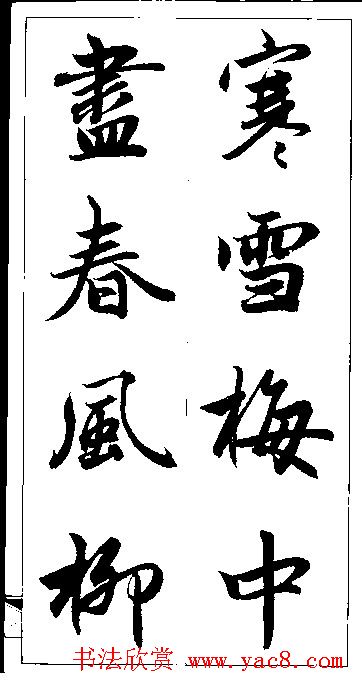 寒雪梅中
盡春風柳
书法欣赏 www.yac8.com